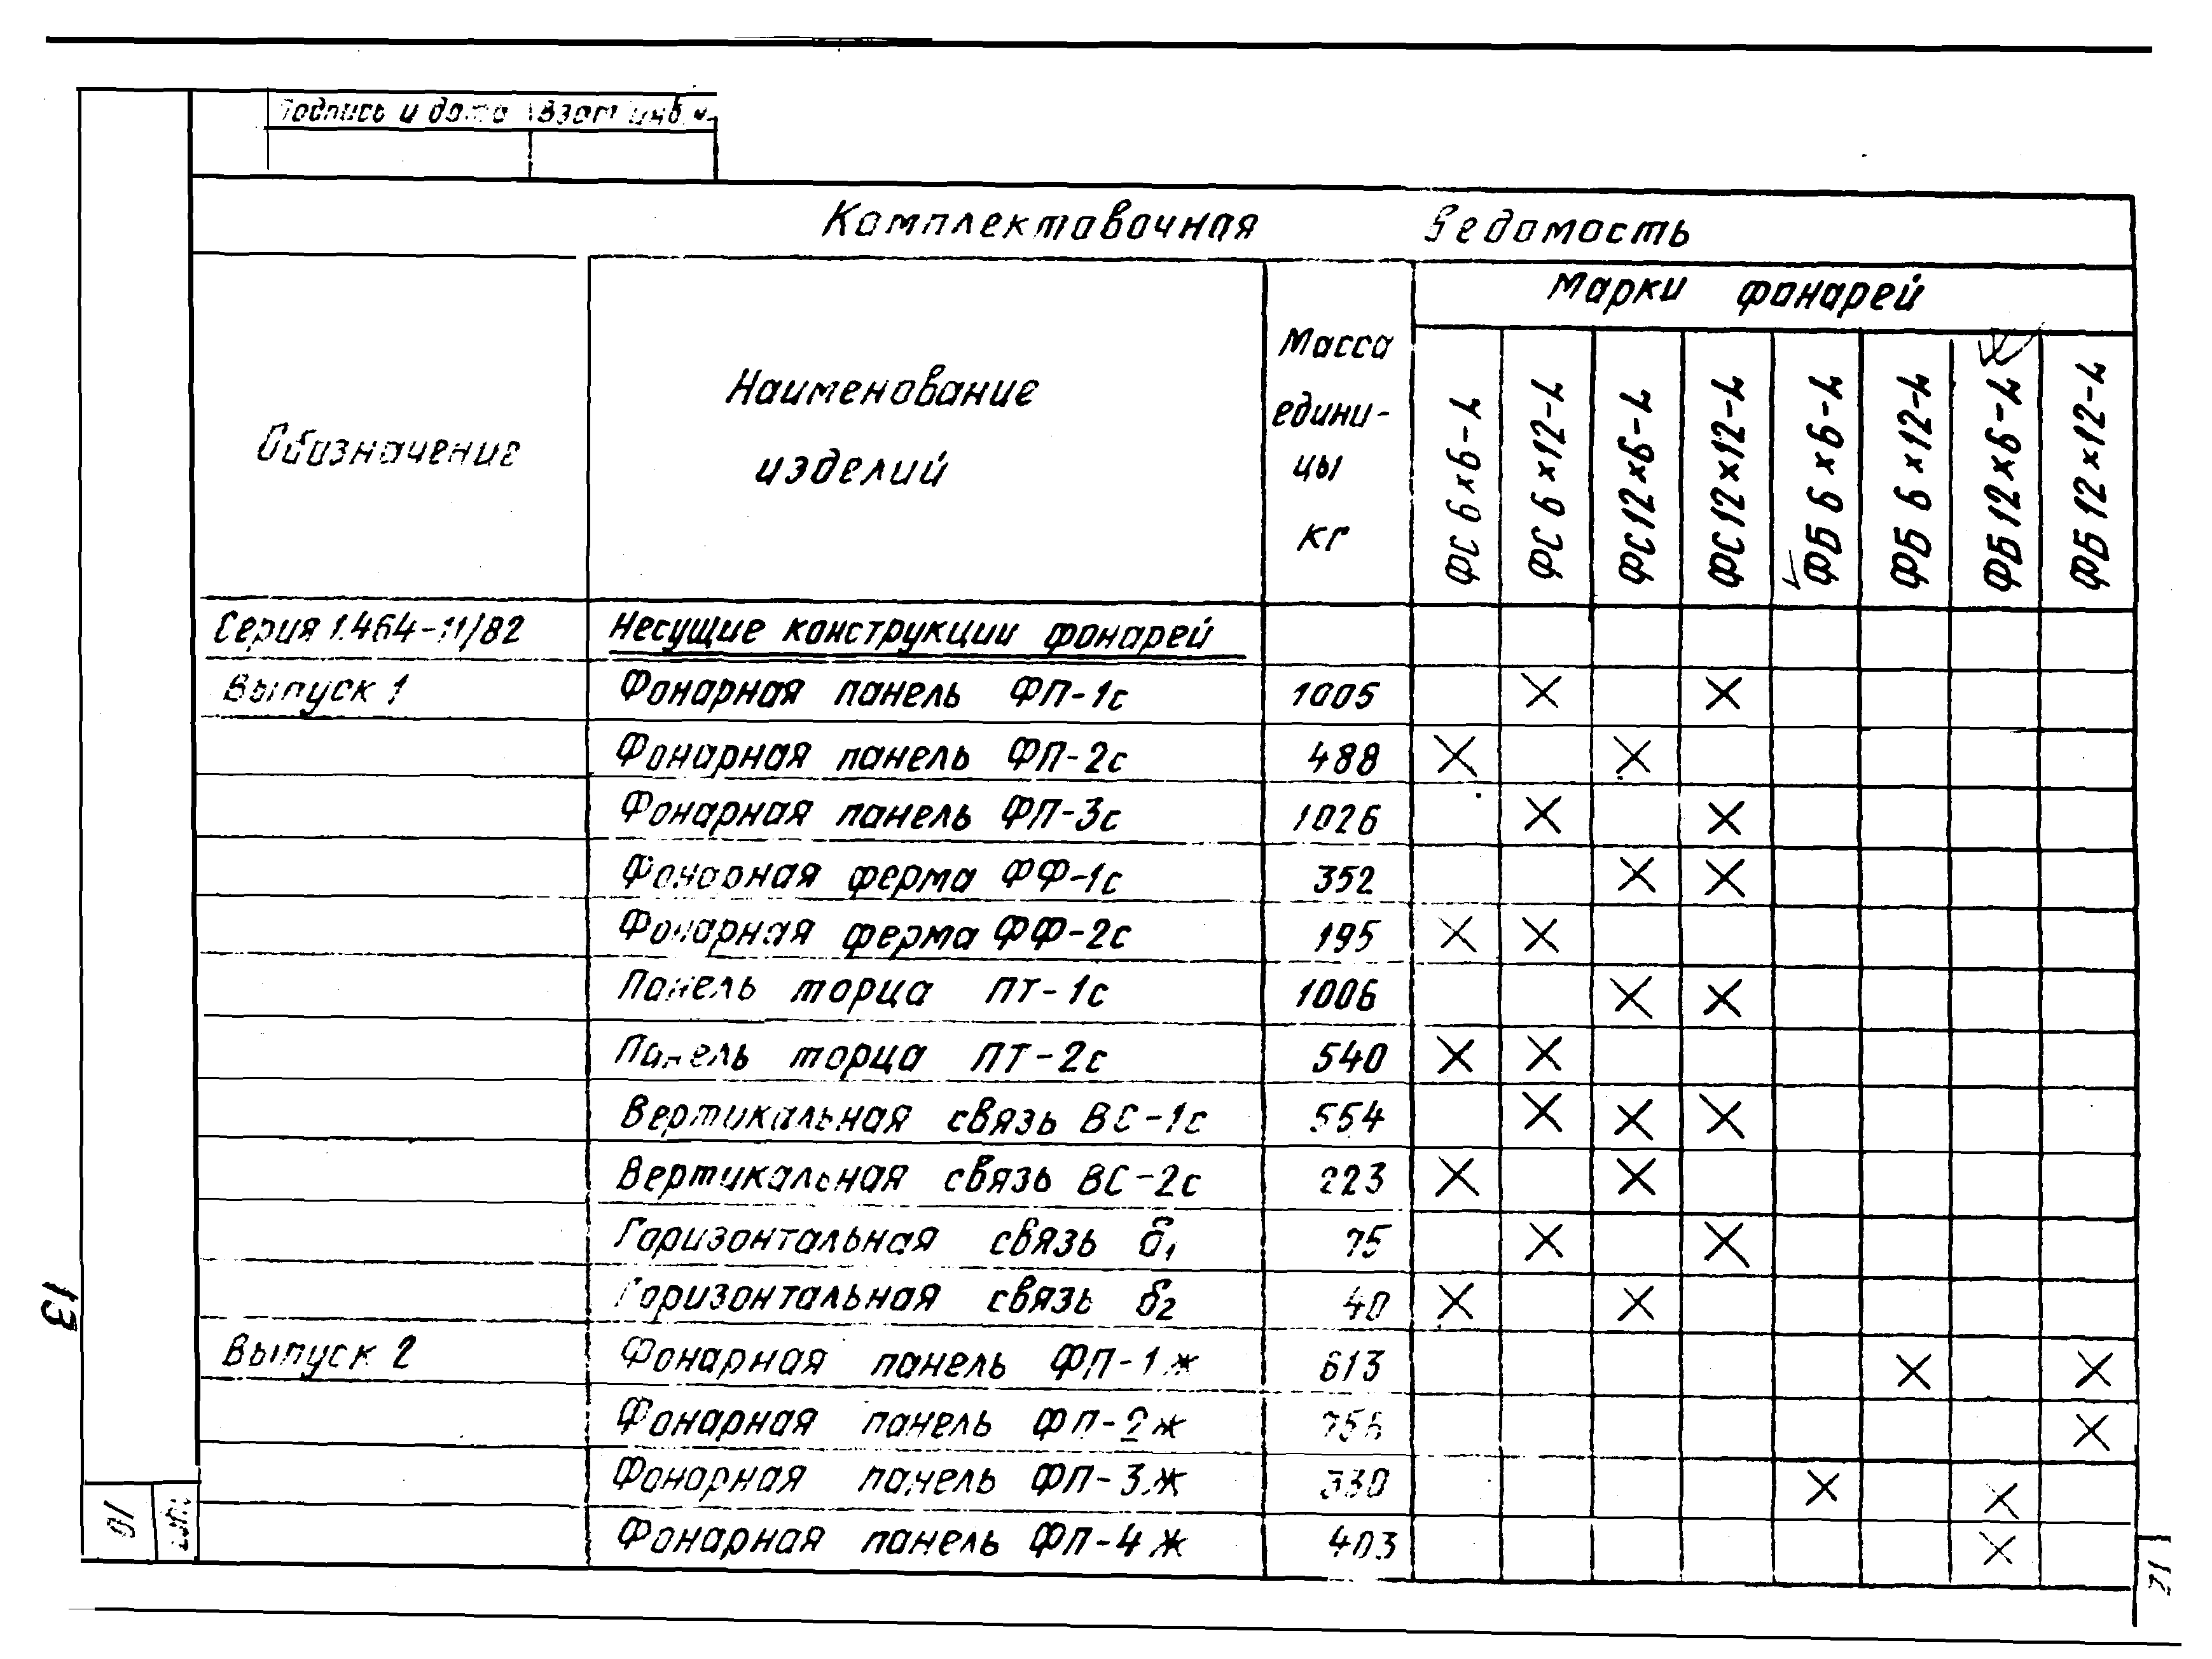 Подпись и дата Взам инв. №
Комплектовочная ведомость
Обозначение
Наименование изделий
Масса едини-
цы
кг
Марки фонарей
ФС 6×6-L
ФС 6×12-L
ФС 12×6-L
ФС 12×12-L
ФБ 6×6-L
ФБ 6×12-L
ФБ 12×6-L
ФБ 12×12-L
Серия 1.464-11/82 Несущие конструкции фонарей
Выпуск 1 Фонарная панель ФП-1с 1005 × ×
Фонарная панель ФП-2с 488 × ×
Фонарная панель ФП-3с 1026 × ×
Фонарная ферма ФФ-1с 352 × ×
Фонарная ферма ФФ-2с 195 × ×
Панель торца ПТ-1с 1006 × ×
Панель торца ПТ-2с 540 × ×
Вертикальная связь ВС-1с 554 × × ×
Вертикальная связь ВС-2с 223 × ×
Горизонтальная связь б1 75 × ×
Горизонтальная связь б2 40 × ×
Выпуск 2 Фонарная панель ФП-1ж 613 × ×
Фонарная панель ФП-2ж ×
Фонарная панель ФП-3ж 330 × ×
Фонарная панель ФП-4ж 403 ×
13